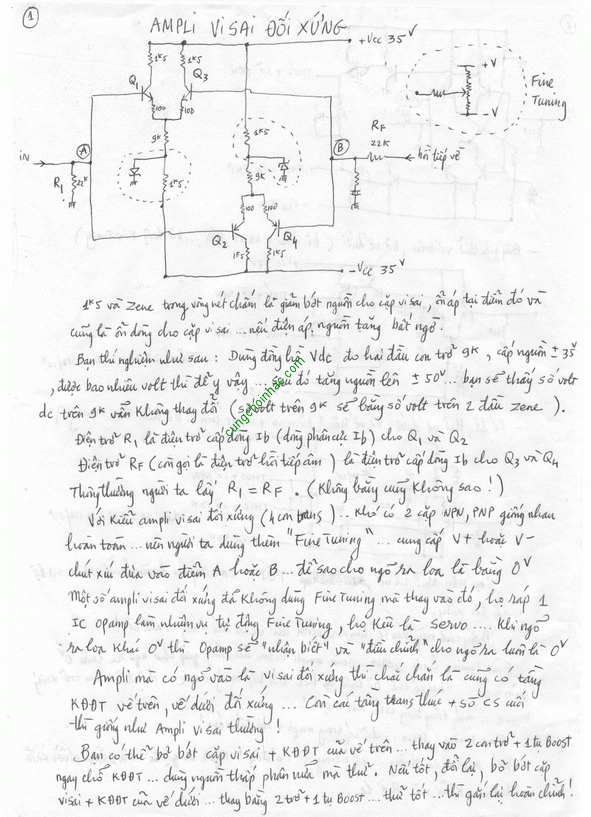 1
AMPLI VI SAI ĐỐI XỨNG
+Vcc 35V
1K5
1K5
Q1
Q3
100
100
+V
-V
Fine
Tuning
9K
1K5
A
B
RF
22K
hồi tiếp về
iN
R1
22K
1K5
9K
100
100
Q2
Q4
1K5
1K5
-Vcc 35V
1K5 và Zene trong vòng nét chấm là giảm bớt nguồn cho cặp vi sai, ổn áp tại điểm đó và
cũng là ổn dòng cho cặp vi sai ... nếu điện áp nguồn tăng bất ngờ.
Bạn thí nghiệm như sau : Dùng đồng hồ Vdc đo hai đầu con trở 9K, cấp nguồn ± 35V
, được bao nhiêu volt thì để ý vậy ... sau đó tăng nguồn lên ± 50V ... bạn sẽ thấy số volt
dc trên 9K vẫn không thay đổi (số volt trên 9K sẽ bằng số volt trên 2 đầu zene ).
cungchoinhac.com
Điện trở R1 là điện trở cấp dòng Ib (dòng phân cực Ib) cho Q1 và Q2
Điện trở RF (còn gọi là điện trở hồi tiếp âm) là điện trở cấp dòng Ib cho Q3 và Q4
Thông thường người ta lấy R1 = RF . (Không bằng cũng không sao !)
Với kiểu ampli vi sai đối xứng (4 con trans) .. khó có 2 cặp NPN, PNP giống nhau
hoàn toàn ... nên người ta dùng thêm "Fine Tuning" ... cung cấp V+ hoặc V-
chút xíu đưa vào điểm A hoặc B ... để sao cho ngõ ra loa là bằng 0V
Một số ampli vi sai đối xứng đã không dùng Fine Tuning mà thay vào đó, họ ráp 1
IC opamp làm nhiệm vụ tự động Fine Tuning, họ kêu là Servo .... Khi ngõ
ra loa khác 0V thì opamp sẽ "nhận biết" và "điều chỉnh" cho ngõ ra luôn là 0V
Ampli mà có ngõ vào là vi sai đối xứng thì chắc chắn là cũng có tầng
KĐĐT vế trên, vế dưới đối xứng ... Còn các tầng thang thúc + sò cs cuối
thì giống như Ampli vi sai thường !
Bạn có thể bỏ bớt cặp vi sai + KĐĐT của vế trên ... thay vào 2 con trở + 1 tụ Boost
ngay chỗ KĐĐT ... dùng nguồn thấp phân nửa mà thử. Nếu tốt, đổi lại, bỏ bớt cặp
vi sai + KĐĐT của vế dưới ... thay bằng 2 trở + 1 tụ Boost ... thử tốt ... thì gắn lại hoàn chỉnh !